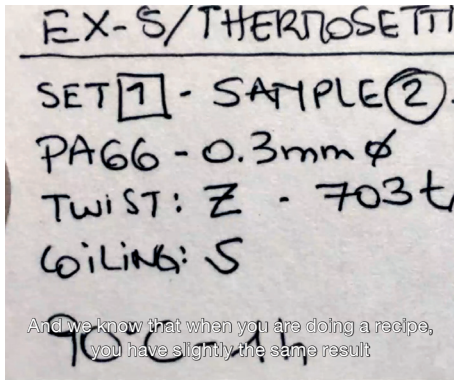 EX-S/THERMOSETTI
SET 1 - SAMPLE 2.
PA66 - 0.3mm ϕ
TWIST: Z - 703 t
COILING: S
90°C - 1h
And we know that when you are doing a recipe,
you have slightly the same result